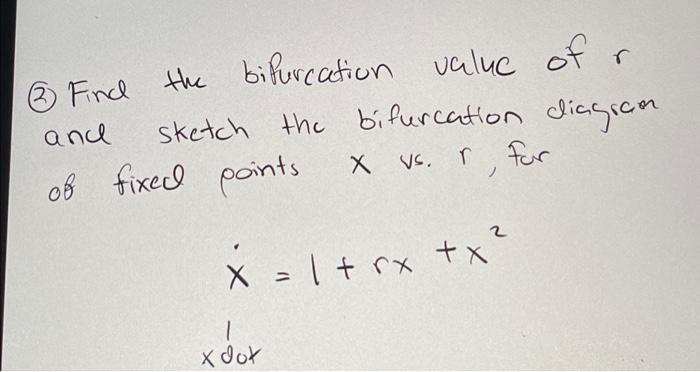 ② Find the bifurcation value of r
and sketch the bifurcation diagram
of fixed points x vs. r, for
ẋ = 1 + rx + x²
x dot